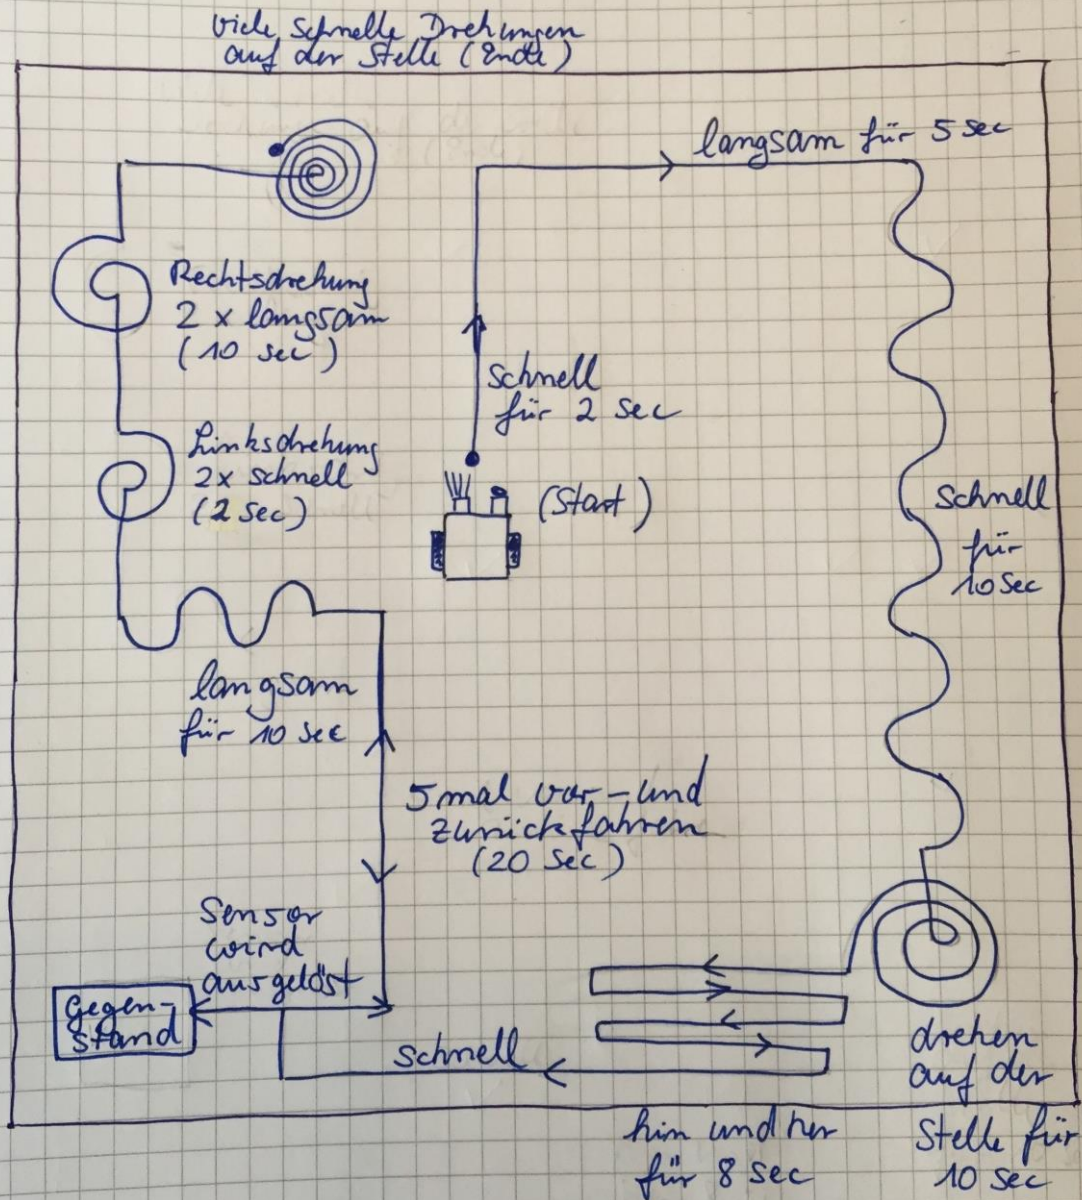 viele schnelle Drehungen
auf der Stelle (Ende)
langsam für 5 sec
Rechtsdrehung
2 x langsam
(10 sec)
schnell
für 2 sec
Linksdrehung
2x schnell
(2 sec)
(Start)
schnell
für
10 sec
langsam
für 10 sec
5 mal vor- und
zurückfahren
(20 sec)
Sensor
wird
ausgelöst
Gegen-
stand
schnell
drehen
auf der
Stelle für
10 sec
hin und her
für 8 sec